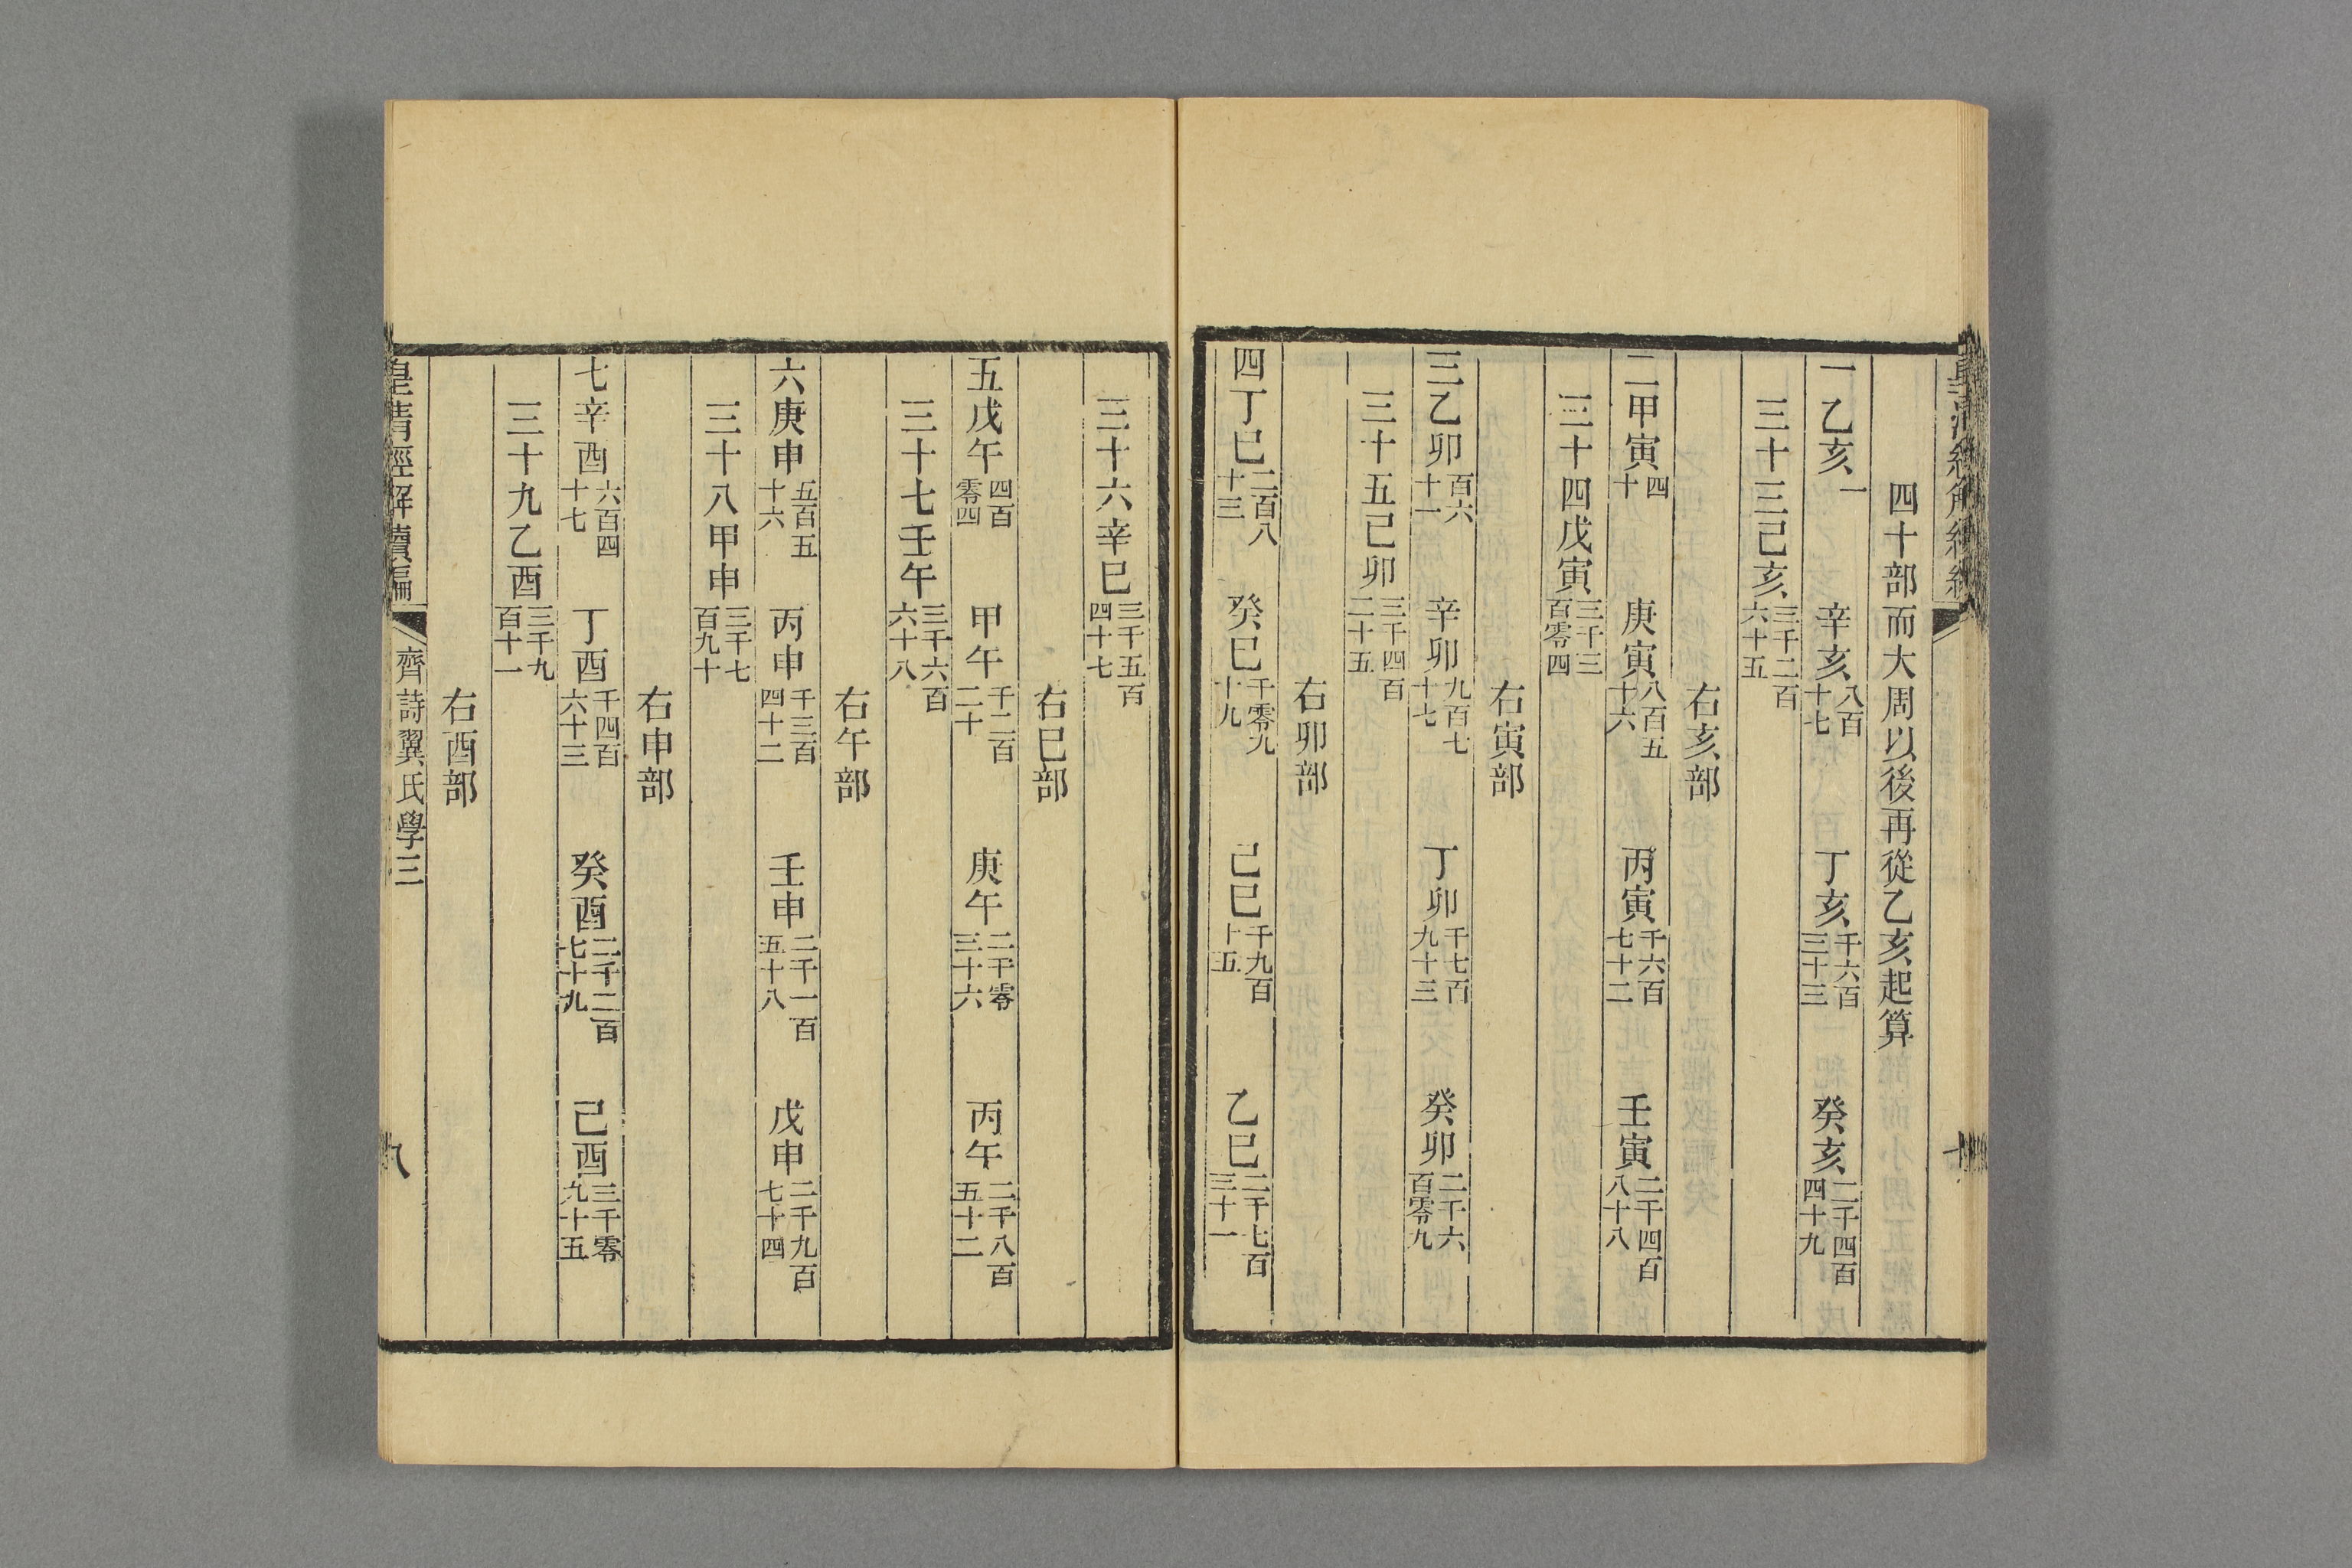 皇清經解續編 十
四十部而大周以後再從乙亥起算
一乙亥一 辛亥八百十七 丁亥千六百三十三 癸亥二千四百四十九
三十三己亥三千二百六十五
右亥部
二甲寅四十 庚寅八百五十六 丙寅千六百七十二 壬寅二千四百八十八
三十四戊寅三千三百零四
右寅部
三乙卯百六十一 辛卯九百七十七 丁卯千七百九十三 癸卯二千六百零九
三十五己卯三千四百二十五
右卯部
四丁巳二百八十三 癸巳千零九十九 己巳千九百十五 乙巳二千七百三十一
三十六辛巳三千五百四十七
右巳部
五戊午四百零四 甲午千二百二十 庚午二千零三十六 丙午二千八百五十二
三十七壬午三千六百六十八
右午部
六庚申五百五十六 丙申千三百四十二 壬申二千一百五十八 戊申二千九百七十四
三十八甲申三千七百九十
右申部
七辛酉六百四十七 丁酉千四百六十三 癸酉二千二百七十九 己酉三千零九十五
三十九乙酉三千九百十一
右酉部
皇清經解續編 齊詩翼氏學三 九